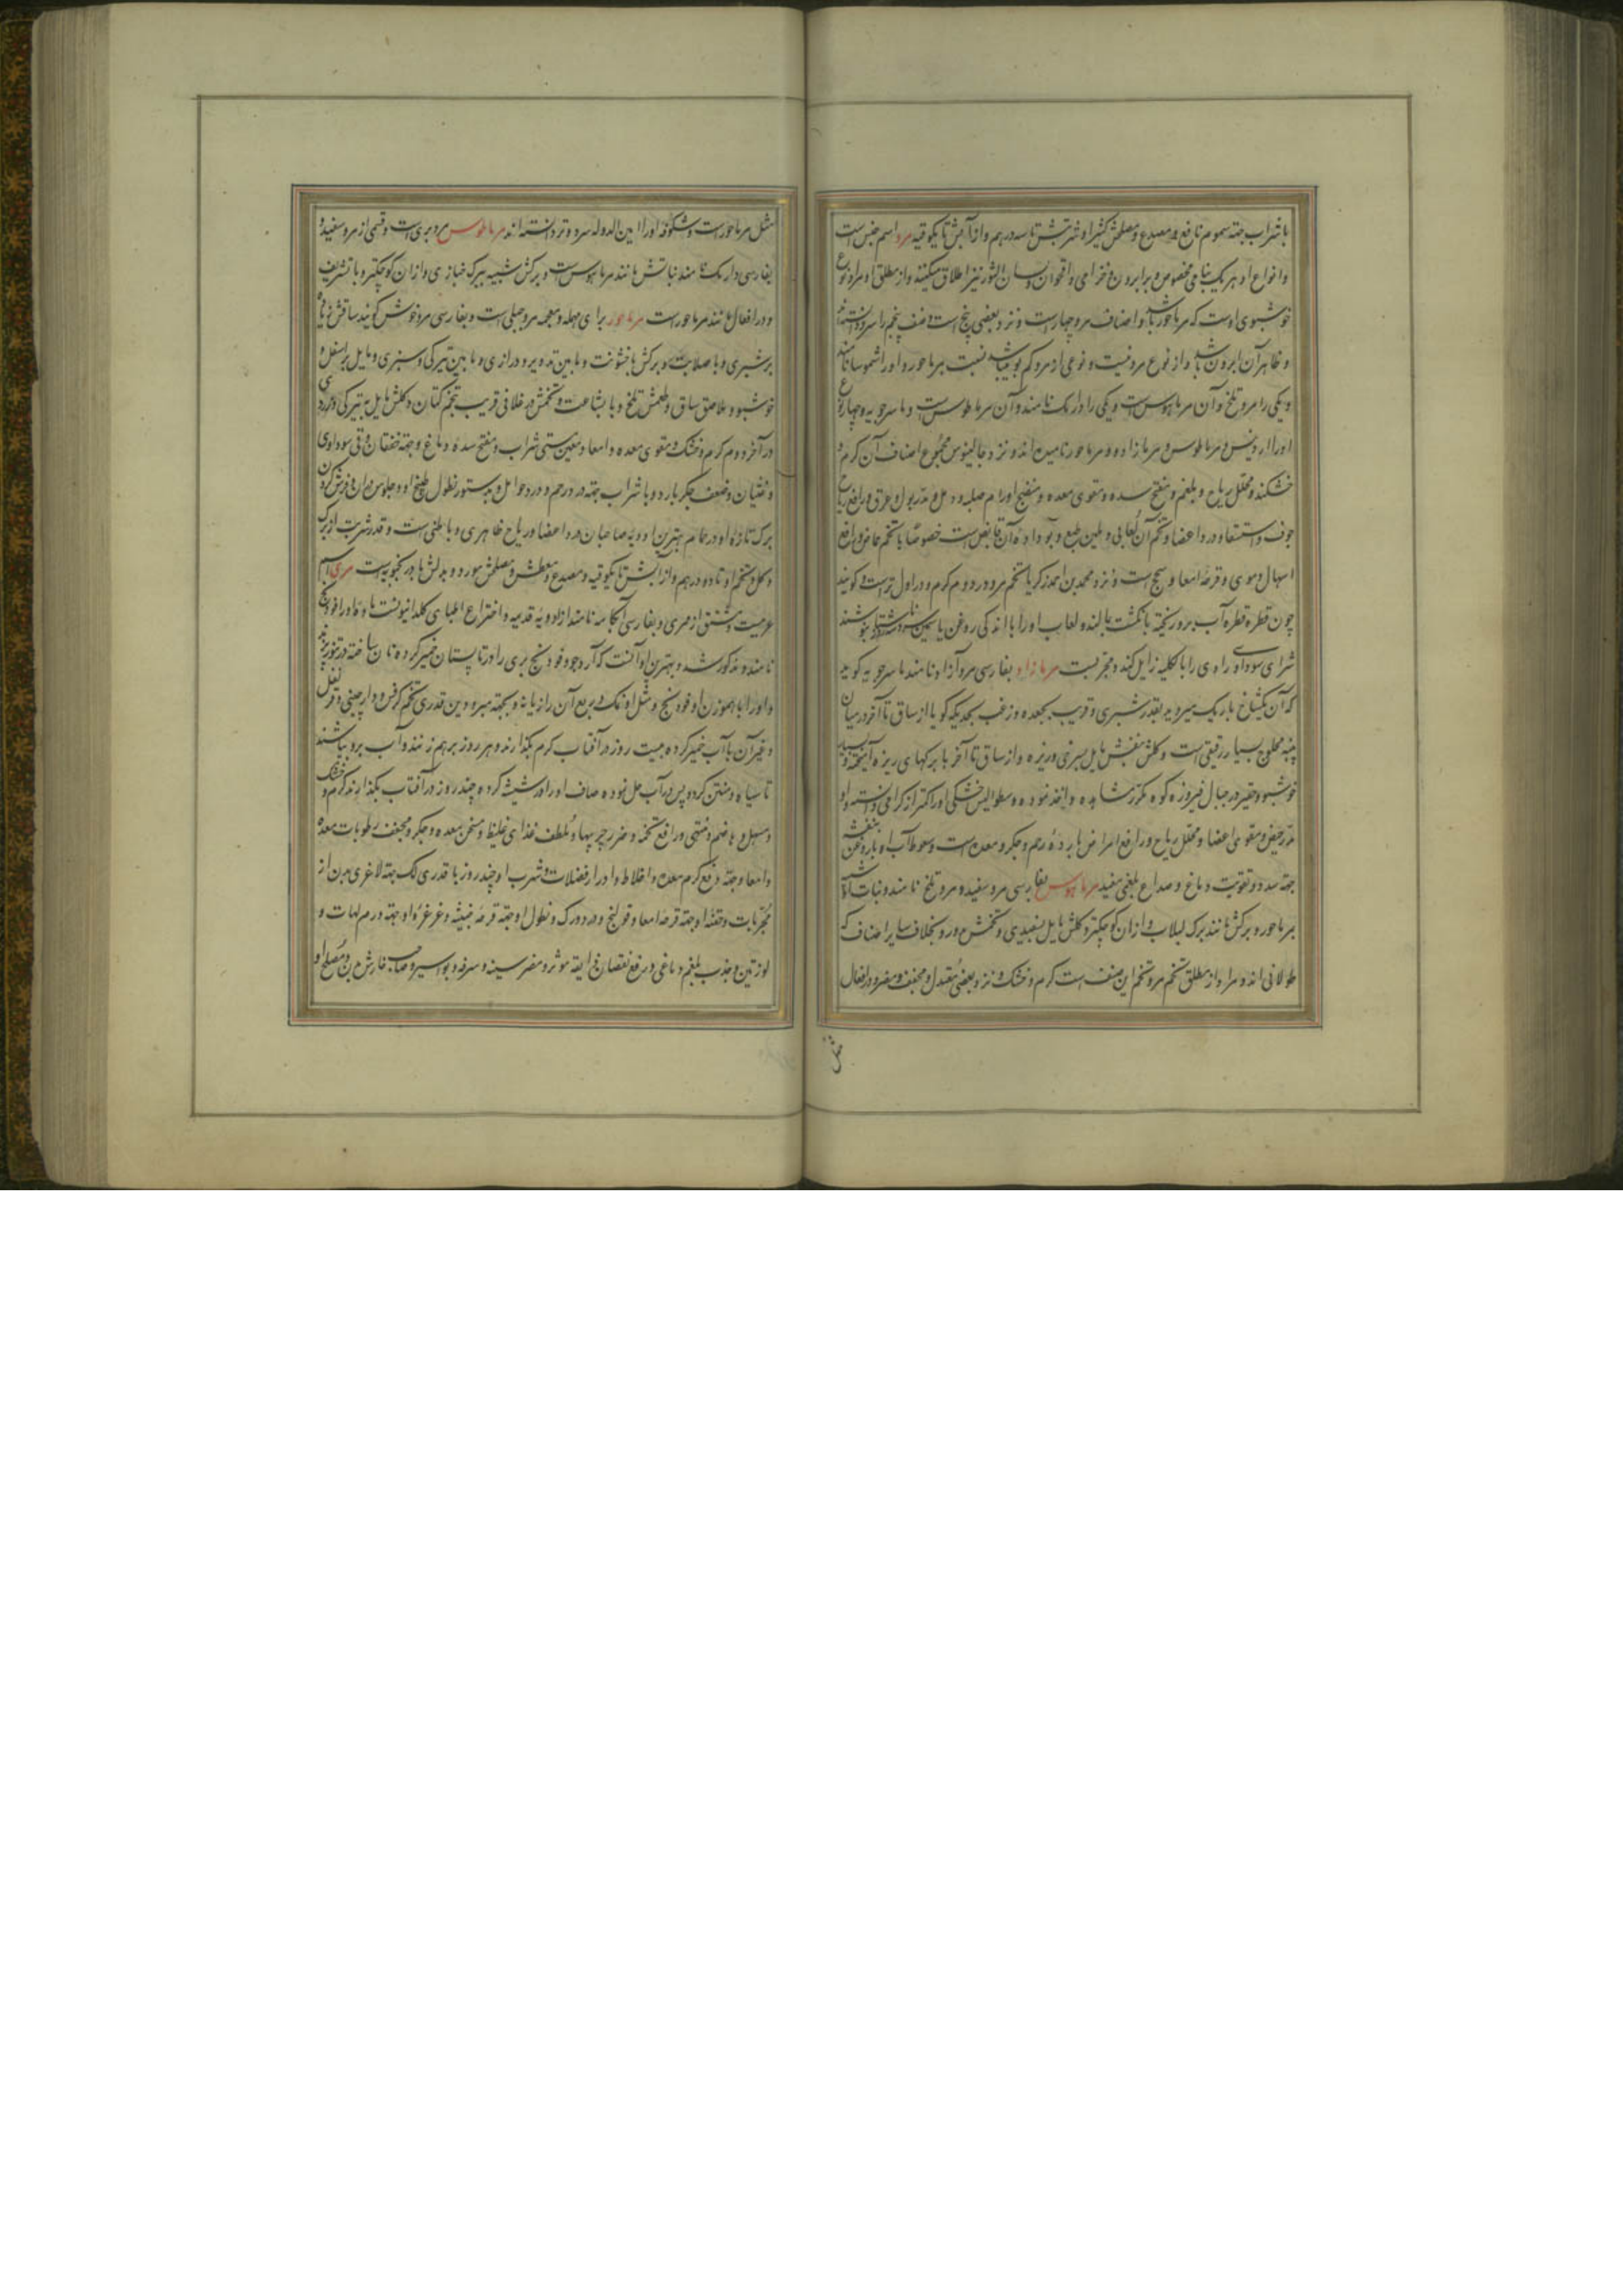 با شراب جهته سموم نافع و مصدع و مصلحش کثیرا و شربتش تا سه درهم و از آبش تا یکوقیه مرو اسم جنس است
و انواع او هر یک بنامی مخصوص و بر ابرون و خزامی و اقحوان و لسان الثور نیز اطلاق میکنند و از مطلق او مراد نوع
خوشبوی اوست که مرماحوز باشد و اصناف مرو چهار است و نزد بعضی پنج است و صنف پنجم را سرو دانسته‌اند
و ظاهر آن ابرون باشد و از نوع مرو نیست و نوعی از مرو کم بو میباشد نسبت بمرماحوز و او را شموسا نامند
و یکی را مرو تلخ و آن مرماهوس است و یکی را دارمک نامند و آن مرماطوس است و ماسرجویه چهار نوع
او را اردیس و مرماطوس و مرمازاد و مرماحوز نامیده‌اند و نزد جالینوس مجموع اصناف آن گرم و
خشکند و محلل ریاح و بلغم و مفتح سده و مقوی معده و منضج اورام صلبه و دمل و مدر بول و عرق و رافع ریاح
جوف و استسقا و درد اعضا و تخم آن لعابی و ملین طبع و بو داده آن قابض است خصوصا با تخم حماض و رافع
اسهال دموی و قرحه امعا و سحج است و نزد محمد بن احمد زکریا تخم مرو در دوم گرم و در اول تر است و گویند
چون قطره قطره آب برو ریخته بانگشت بمالند و لعاب او را با اندکی روغن یاسمین سه روز ناشتا بنوشند
شرای سوداوی را بالکلیه زایل کند و مجربست مرمازاد بفارسی مرو آزاد نامند ماسرجویه گوید
که آن یکشاخ باریک میروید بقدر شبری و قریب بجعده و زغب بحدیکه گویا از ساق تا آخر در میان
پنبه محلوج بسیار رقیقی است و گلش بنفش مایل بسرخی و ریزه و از ساق تا آخر با برگهای ریزه آمیخته و بسیار
خوشبو و حقیر در جبال فیروزه کوه مکرر مشاهده و اخذ نموده و سطوالیس خشکی او را کمتر از گرمی دانسته و او
مدر حیض و مقوی اعضا و محلل ریاح و رافع امراض بارده رحم و جگر و معده است و سعوط آب او با روغن بنفشه
جهته سدد و تقویت دماغ و صداع بلغمی مفید مرماهوس بفارسی مرو سفید و مرو تلخ نامند و نباتش شبیه
بمرماحوز و برگش مانند برگ لبلاب و از آن کوچکتر و گلش مایل بسفیدی و تخمش مدور و بخلاف سایر اصناف که
طولانی‌اند و مراد از مطلق تخم مرو تخم این صنف است گرم و خشک و نزد بعضی معتدل و مجفف و مضر و در افعال
مثل
مثل مرماحوز است و شکوفه او را امین الدوله سرد و تر دانسته‌اند مرماطوس مرو بری است و قسمی از مرو سفید و
بفارسی دارمک نامند نباتش مانند مرماهوس است و برگش شبیه ببرگ خبازی و از آن کوچکتر و با تشریف
و در افعال مانند مرماحوز است مرماحوز برای مهمله و معجمه مرو جبلی است و بفارسی مرو خوش گویند ساقش
بر شبری و با صلابت و برگش با خشونت و مابین تدویر و درازی و مابین تیرگی و سبزی و مایل باسفل و
خوشبو و ملاصق ساق و طعمش تلخ و با بشاعت و تخمش در غلافی قریب بتخم کتان و گلش مایل به تیرگی و زردی
در آخر دوم گرم و خشک و مقوی معده و امعا و معین مستی شراب و مفتح سده دماغ و جهته خفقان و قی سوداوی
و غثیان و ضعف جگر بارد و با شراب جهته درد رحم و درد حوامل و بدستور نطول طبیخ او و جلوس در آن و فرش کردن
برگ تازه او در حمام بهترین ادویه صاحبان درد اعضا و ریاح ظاهری و باطنی است و قدر شربت از برگ
و گل و تخم او تا ده درهم و از آبش تا یکوقیه و مصدع و معطش و مصلحش مورد و بدلش بادرنجبویه است مری اسم
عربیست مشتق از مری و بفارسی آبکامه نامند از ادویه قدیمه و اختراع اطبای کلدانیونست
نامند و مذکور شد و بهترین او آنست که آرد جو و فودنج بری را در تابستان خمیر کرده نان ساخته در تنور بپزند
و او را با هموزن او فودنج و مثل او نمک و ربع آن رازیانه و بجهته مبرودین قدری تخم کرفس و دارچینی و قرنفل
و غیر آن با آب خمیر کرده بیست روز در آفتاب گرم بگذارند و هر روز بر هم زنند و آب برو بپاشند
تا سیاه و متعفن گردد پس در آب حل نموده صاف او را در شیشه کرده چند روز در آفتاب بگذارند گرم و خشک
و مسهل و هاضم و مشتهی و رافع تخمه و ضرر چربیها و ملطف غذای غلیظ و مسخن معده و جگر و مجفف رطوبات معده
و امعا و جهته دفع کرم معده و اخلاط و ادرار فضلات و شرب او چند روز با قدری لک جهته لاغری بدن از
مجربات و حقنه او جهته قرحه امعا و قولنج و درد ورک و نطول او جهته قرحه خبیثه و غرغره او جهته ورم لهات و
لوزتین و جذب بلغم دماغی و رفع نقصان ذایقه موثر و مضر سینه و سرفه و بواسیر و صاحب خارش بدن و مصلح او